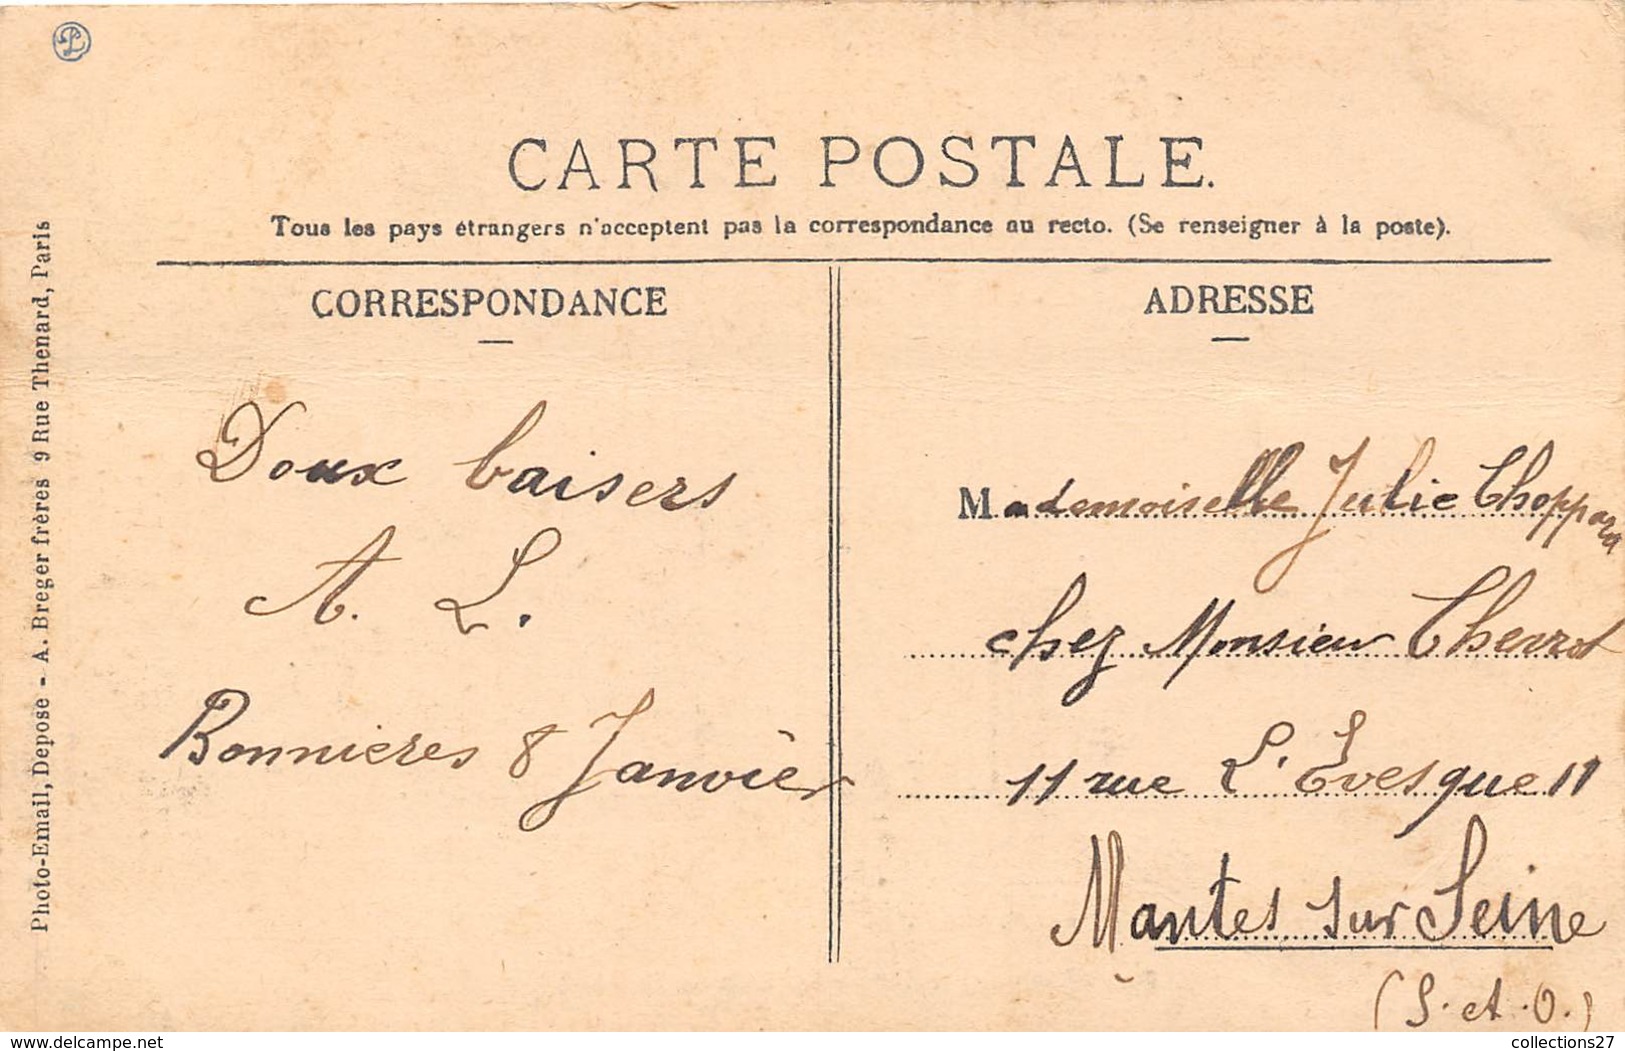 CARTE POSTALE.
Tous les pays étrangers n'acceptent pas la correspondance au recto. (Se renseigner à la poste).
CORRESPONDANCE
Doux baisers
A. L.
Bonnieres 8 Janvier
ADRESSE
Mademoiselle Julie
chez Monsieur
11 rue L'Evesque 11
Mantes sur Seine
(S. et. O.)
Photo-Email, Depose - A. Breger frères 9 Rue Thenard, Paris
delcampe.net
collections27